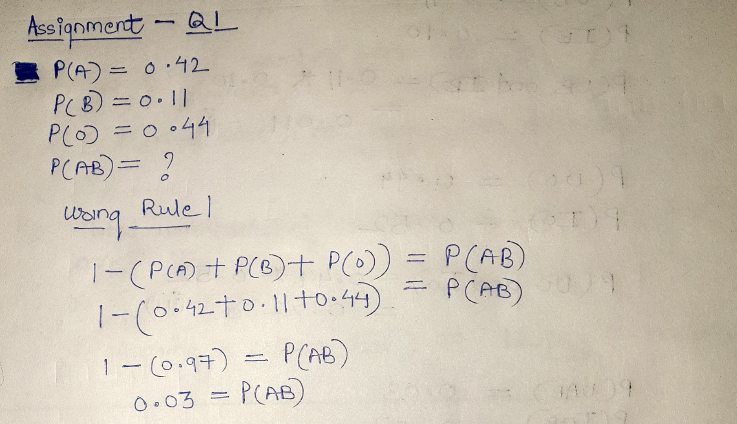 Assignment - Q1
P(A) = 0.42
P(B) = 0.11
P(O) = 0.44
P(AB) = ?
Using Rule 1
1-(P(A) + P(B) + P(O)) = P(AB)
1-(0.42+0.11+0.44) = P(AB)
1-(0.97) = P(AB)
0.03 = P(AB)